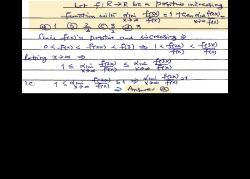 Let f: R→R be a positive increasing
function with lim x→∞ f(3x)/f(x) = 1 then lim x→∞ f(2x)/f(x) =
(a) 1 (b) 2/3 (c) 3/2 (d) 3
Since f(x) is positive and increasing ⇒
0 < f(x) < f(2x) < f(3x) ⇒ 1 < f(2x)/f(x) < f(3x)/f(x)
Letting x→∞ ⇒
1 ≤ lim x→∞ f(2x)/f(x) ≤ lim x→∞ f(3x)/f(x)
i.e. 1 ≤ lim x→∞ f(2x)/f(x) ≤ 1 ⇒ lim x→∞ f(2x)/f(x) = 1
⇒ Answer (a)